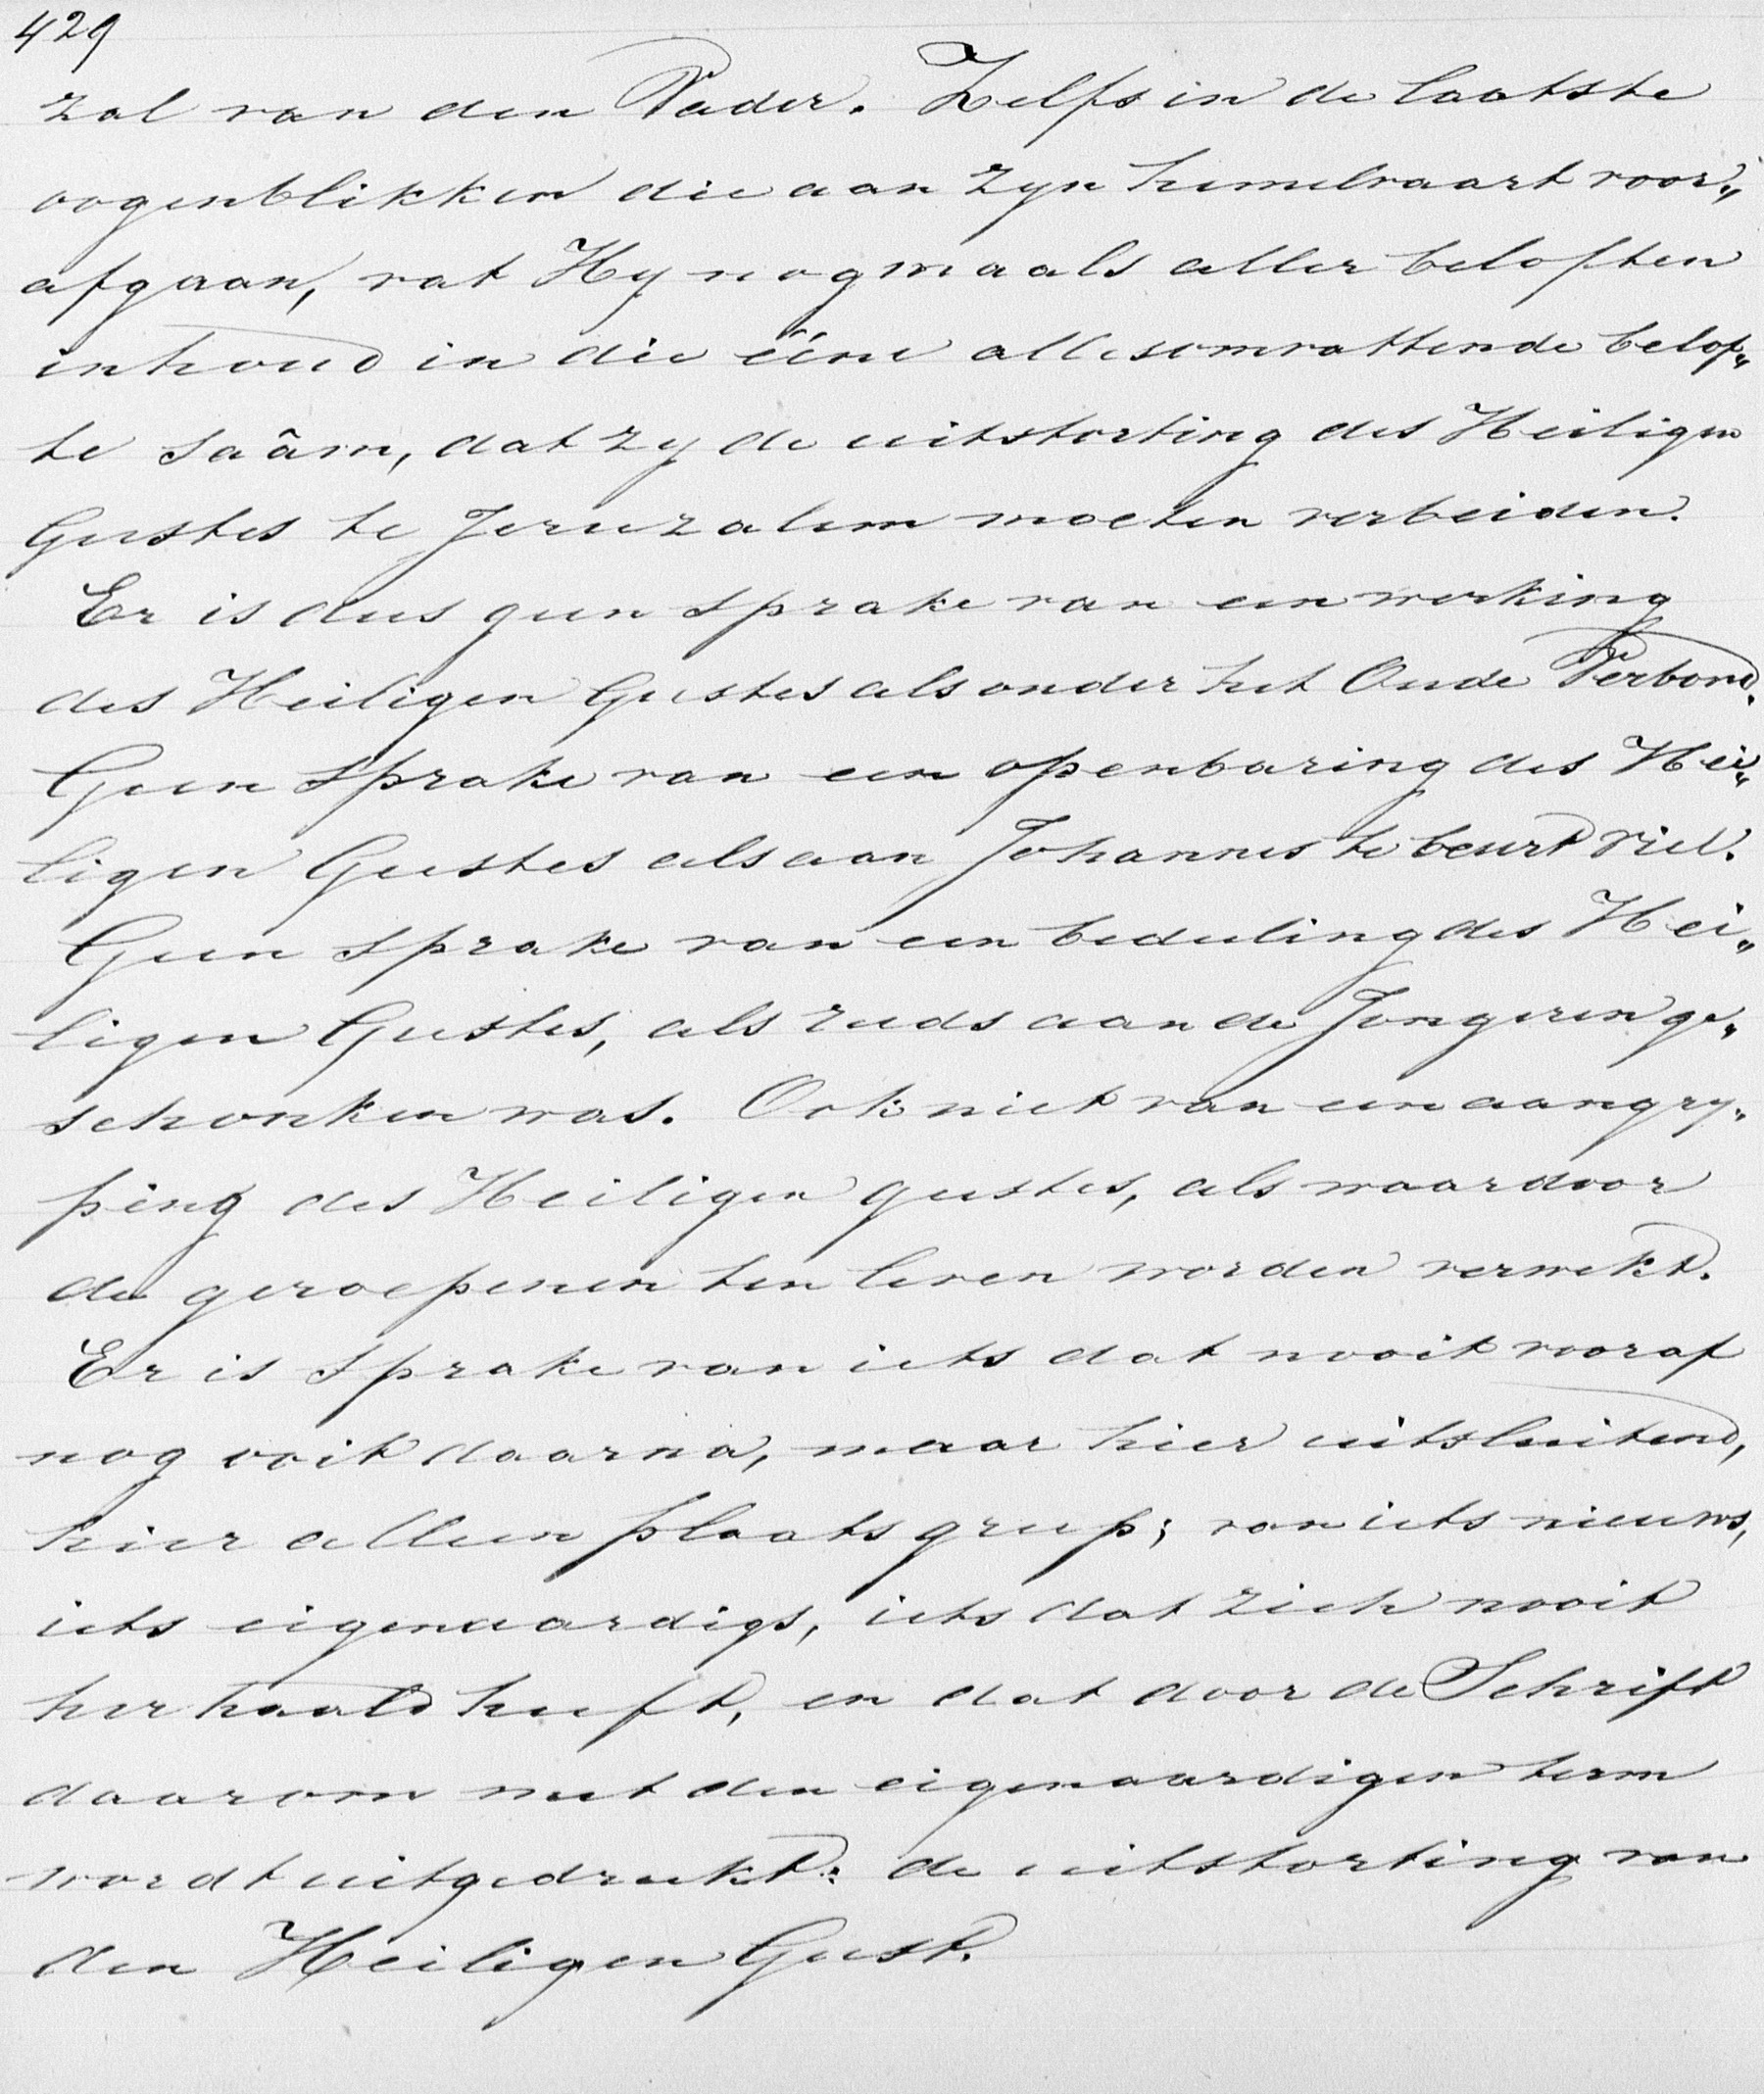 429
zal van den Vader. Zelfs in de laatste
oogenblikken die aan zyn hemelvaart voor„
afgaan, vat Hy nogmaals aller beloften
inhoud in die ééne allesomvattende belof„
te saâm, dat zy de uitstorting des Heiligen
Geestes te Jeruzalem moeten verbeiden.
Er is dus geen sprake van een werking
des Heiligen Geestes als onder het Oude Verbond.
Geen sprake van een openbaring des Hei„
ligen Geestes als aan Johannes te beurt viel.
Geen sprake van een bedeeling des Hei„
ligen Geestes, als reeds aan de Jongeren ge„
schonken was. Ook niet van een aangry„
ping des Heiligen geestes, als waardoor
de geroepenen ten leven worden verwekt.
Er is sprake van iets dat nooit vooraf
nog ooit daarna, maar hier uitsluitend,
hier alleen plaats greep; van iets nieuws,
iets eigenaardigs, iets dat zich nooit
herhaald heeft, en dat door de Schrift
daarom met den eigenaardigen term
wordt uitgedrukt: de uitstorting van
den Heiligen Geest.